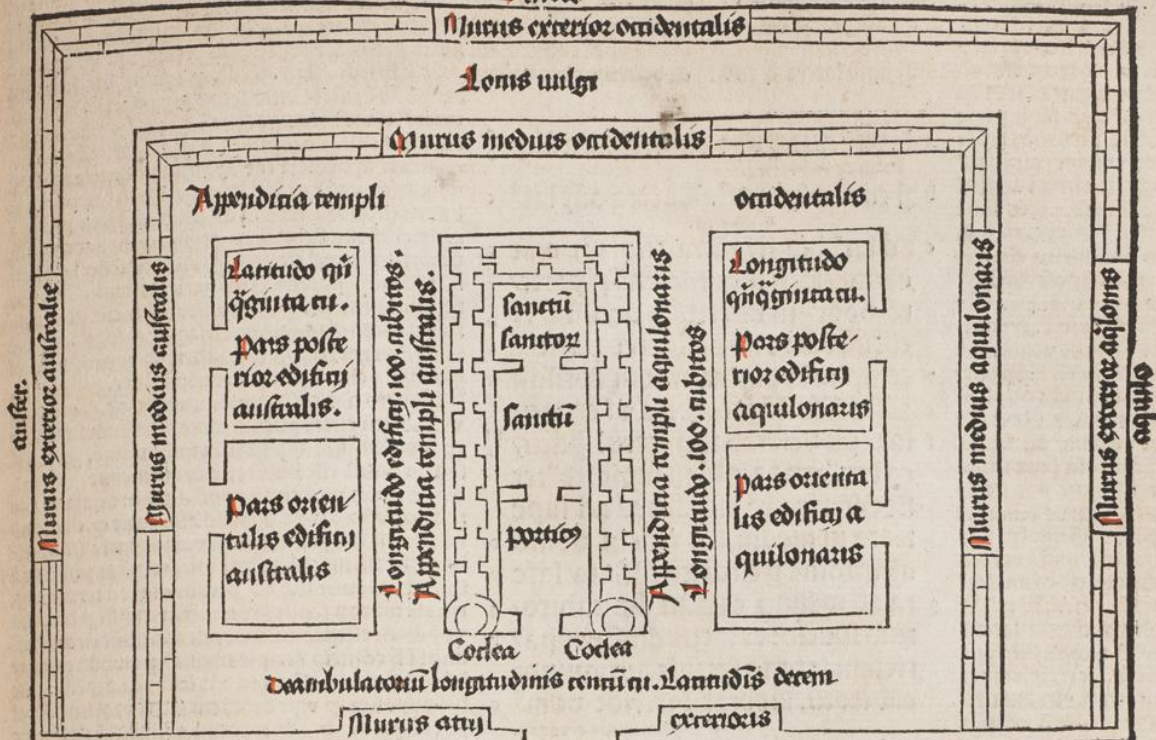 Murus exterior occidentalis
Locus vulgi
Murus medius occidentalis
Appendicia templi
occidentalis
auster.
Murus exterior australis
Murus medius australis
Latitudo qūi
q̄ginta cu.
Pars poste
rior edificij
australis.
Pars orien-
talis edificij
australis
Longitudo edificij.100.cubitos.
Appendicia templi australis.
sanctū
sanctoꝝ
sanctū
porticꝰ
Appendicia templi aquilonaris
Longitudo.100.cubitos.
Longitudo
qūiq̄ginta cu.
Pars poste-
rior edificij
aquilonaris
Pars orienta
lis edificij a
quilonaris
Murus medius aquilonaris
Murus exterior aq̄lonis
Coclea
Coclea
Deambulatoriū longitudinis centū cu. Latitudīs decem
Murus atrij
exterioris